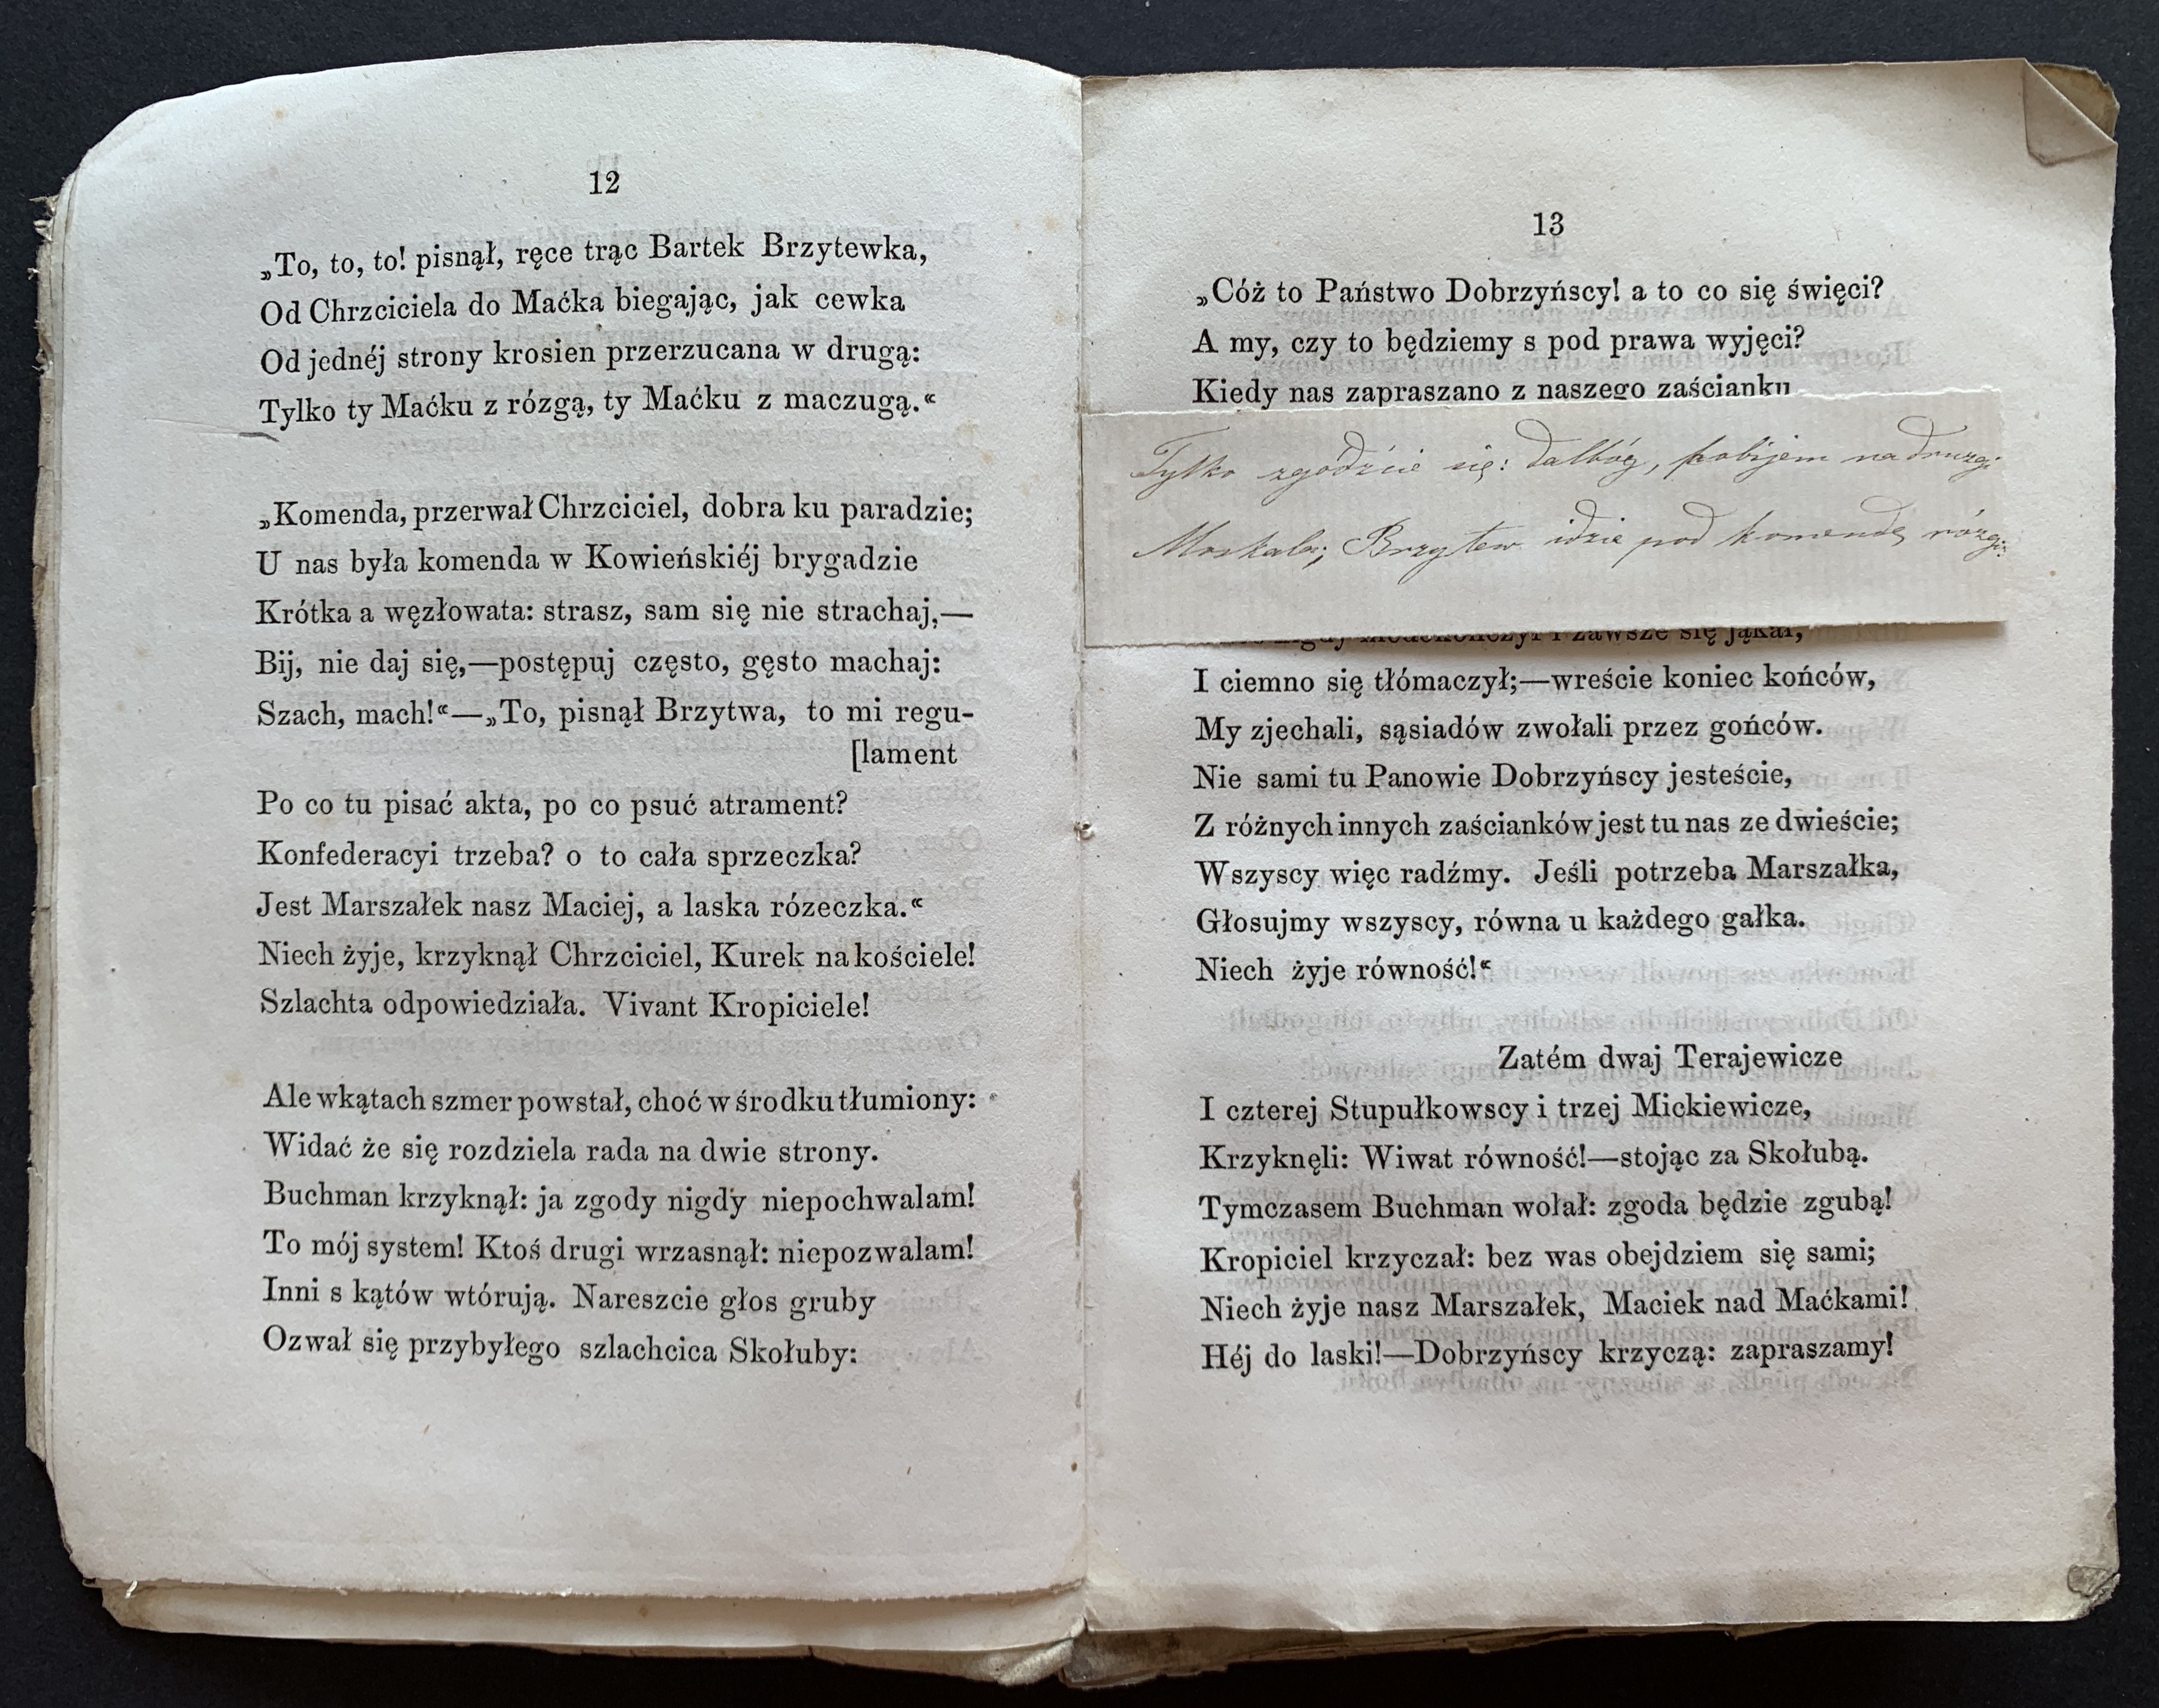 12
„To, to, to! pisnął, ręce trąc Bartek Brzytewka,
Od Chrzciciela do Maćka biegając, jak cewka
Od jednéj strony krosien przerzucana w drugą:
Tylko ty Maćku z rózgą, ty Maćku z maczugą.“
„Komenda, przerwał Chrzciciel, dobra ku paradzie;
U nas była komenda w Kowieńskiéj brygadzie
Krótka a węzłowata: strasz, sam się nie strachaj,—
Bij, nie daj się,—postępuj często, gęsto machaj:
Szach, mach!“—„To, pisnął Brzytwa, to mi regu-
[lament
Po co tu pisać akta, po co psuć atrament?
Konfederacyi trzeba? o to cała sprzeczka?
Jest Marszałek nasz Maciej, a laska rózeczka.“
Niech żyje, krzyknął Chrzciciel, Kurek na kościele!
Szlachta odpowiedziała. Vivant Kropiciele!
Ale w kątach szmer powstał, choć w środku tłumiony:
Widać że się rozdziela rada na dwie strony.
Buchman krzyknął: ja zgody nigdy niepochwalam!
To mój system! Ktoś drugi wrzasnął: niepozwalam!
Inni s kątów wtórują. Nareszcie głos gruby
Ozwał się przybyłego szlachcica Skołuby:
13
„Cóż to Państwo Dobrzyńscy! a to co się święci?
A my, czy to będziemy s pod prawa wyjęci?
Kiedy nas zapraszano z naszego zaścianku
Tylko zgódźcie się: dalbóg, pobijem na druzgi
Moskala; Brzytew idzie pod komendę rózgi.
i zawsze się jąkał,
I ciemno się tłómaczył;—wreście koniec końców,
My zjechali, sąsiadów zwołali przez gońców.
Nie sami tu Panowie Dobrzyńscy jesteście,
Z różnych innych zaścianków jest tu nas ze dwieście;
Wszyscy więc radźmy. Jeśli potrzeba Marszałka,
Głosujmy wszyscy, równa u każdego gałka.
Niech żyje równość!“
Zatém dwaj Terajewicze
I czterej Stupułkowscy i trzej Mickiewicze,
Krzyknęli: Wiwat równość!—stojąc za Skołubą.
Tymczasem Buchman wołał: zgoda będzie zgubą!
Kropiciel krzyczał: bez was obejdziem się sami;
Niech żyje nasz Marszałek, Maciek nad Maćkami!
Héj do laski!—Dobrzyńscy krzyczą: zapraszamy!